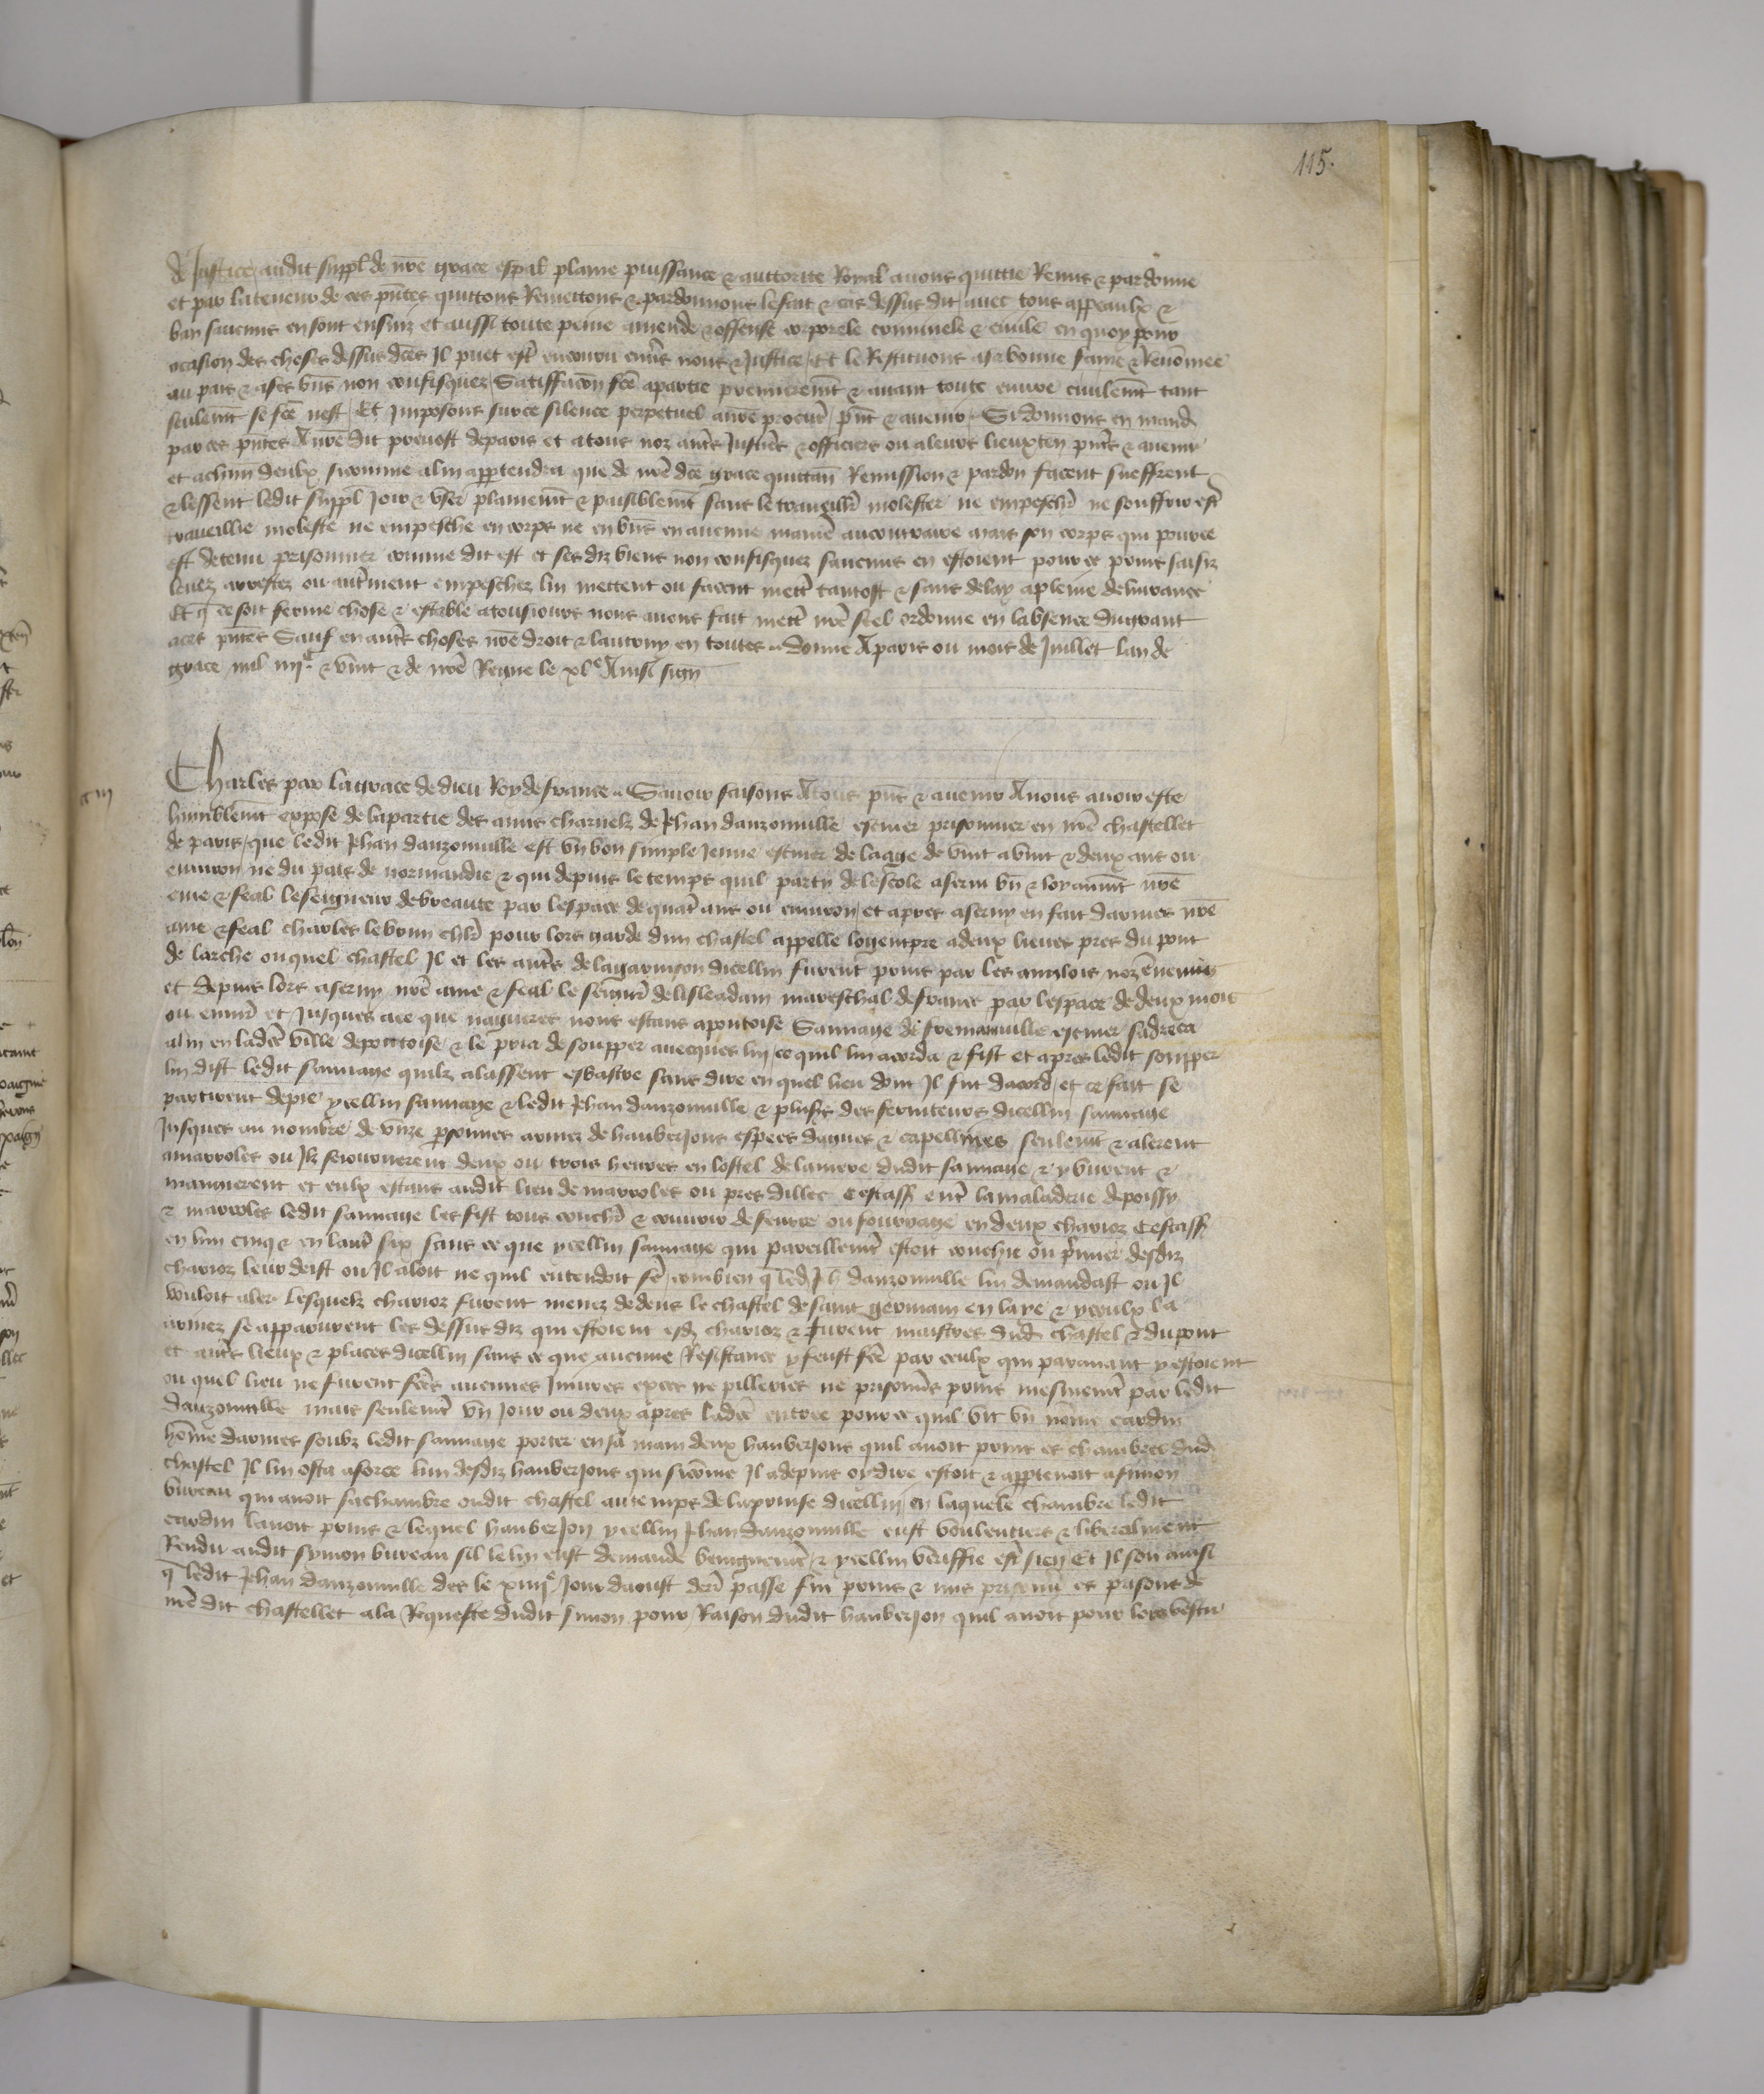 115.
de Justice audit suppl de nr̃e grace esp̃al plaine puissance & auctorite Royal auons quittie Remis & pardonne
et par la teneur de ces pñtes quittons Remettons & pardonnons le fait & cas dessus dit auec tous appeaulx &
ban saucuns en sont ensuiz et aussi toute peine amende & offense corporele criminele & ciuile en quoy pour
occasion des choses dessus dc̃es Il puet estr̃ encouru enu͛s nous & Justice Et le Restituons a sa bonne fame & Renõmee
au pais & a ses bñs non confisquez Satisffacõn fc̃e a partie premierem̃t & auant toute euure ciuilem̃t tant
seulem̃t se fc̃e nest Et Imposons sur ce silence perpetuel a nr̃e procur̃ pñt & auenir Si donnons en mand
par ces pñtes A nr̃e dit preuost de paris et a tous noz autr̃s Justic̃rs & officiers ou a leurs lieuxten pñs & auenir
et a chũn deulx si comme a lui appartendra que de nr̃e dc̃e grace quittan Remission & pardon facent sueffrent
& lessent ledit suppl Joir & vser plainem̃t & paisiblem̃t sans le trauaill̃r molester ne empesch̃r ne souffrir estr̃
trauaillie moleste ne empesche en corps ne en bñs en aucune manie͛ au contraire mais son corps qui pour ce
est detenu prisonnier comme dit est et ses diz biens non confisquez saucuns en estoient pour ce prins saisiz
leuez arrestez ou autrement empeschez lui mettent ou facent mettr̃ tantost & sans delay a pleine deliurance
Et q̃ ce soit ferme chose & estable a tousiours nous auons fait mettr̃ nr̃e seel ordonne en labsence du grant
a ces pñtes Sauf en autr̃s choses nr̃e droit & lautruy en toutes Donne A paris ou mois de Juillet lan de
grace mil iiijc & vint & de nr̃e Regne le xle Ainsi sign
Charles par la grace de dieu Roy de france Sauoir faisons A tous pñs & auenir A nous auoir este
humblem̃t expose de la partie des amis charnelz de Jehan danzonuille escuier prisonnier en nr̃e chastellet
de paris que ledit Jehan danzonuille est vn bon simple Jeune escuier de laage de vint a vint & deux ans ou
enuiron ne du pais de normandie & qui depuis le temps quil party de lescole a serui bñ & loyaum̃t nr̃e
ame & feal le seigneur de breaute par lespace de quatr̃ ans ou enuiron et apres a seruy en fait darmes nr̃e
ame & feal charles lebrun chlr̃ pour lors garde dun chastel appelle logempre a deux lieues pres du pont
de larche ou quel chastel Il et les autr̃s de la garnison dicellui furent prins par les anglois noz ẽnemis
et depuis lors a seruy nr̃e ame & feal le seigneur de lisleadam mareschal de france par lespace de deux mois
ou enuir̃ et Jusques a ce que nagueres nous estans a pontoise Sauuage de fremanuille escuier sadreca
a lui en ladc̃e ville de pontoise & le pria de soupper auecques lui ce quil lui acorda & fist et apres ledit soupper
lui dist ledit sauuage quilz alassent esbatre sans dire en quel lieu dont Il fut dacord et ce fait se
partirent de pie ycellui sauuage & ledit Jehan danzonuille & plus͛s des seruiteurs dicellui sauuage
Jusques au nombre de vnze p̃sonnes armez de hauberions espees dagues & capellines seulem̃t & alerent
a marroles ou Ilz seiournerent deux ou trois heures en lostel de la mere dudit sauuage & y burent &
mangerent et eulx estans audit lieu de marroles ou pres dillec Cestass entr̃ la maladerie de poissy
& marroles ledit sauuage les fist tous couchr̃ & couurir de feurre ou fourrage en deux charioz Cestass
en lun cinq & en lautr̃ six sans ce que ycellui sauuage qui pareillem̃t estoit couchie ou p̃mier desdiz
charioz leur deist ou Il aloit ne quil entendoit fe͛ combien q̃ led Jeh danzonuille lui demandast ou Il
vouloit aler Lesquelz charioz furent menez dedens le chastel de saint germain en laye & yceulx la
armez se apparurent les dessus diz qui estoient esd charioz & furent maistres dud chastel & du pont
et autr̃s lieux & places dicellui sans ce que aucune Resistance y feust fc̃e par ceulx qui parauant y estoient
ou quel lieu ne furent fc̃es aucunes Iniures exces ne pilleries ne prisonñs prins mesmem̃t par ledit
danzonuille mais seulem̃t vn Jour ou deux apres ladc̃e entree pour ce quil vit vn nõme cardin
hõme darmes soubz ledit sauuage porter en sa main deux hauberions quil auoit prins es chambres dud
chastel Il lui osta a force lun desdiz hauberions qui si cõme Il a depuis oy dire estoit & appartenoit a simon
bureau qui auoit sa chambre oudit chastel au temps de la prinse dicellui en laquele chambre ledit
cardin lauoit prins & lequel hauberion ycellui Jehan danzonuille eust voulentiers & liberalment
Rendu audit symon bureau sil le lui eust demande benignem̃t & ycellui veriffie estr̃ sien Et Il soit ainsi
q̃ ledit Jehan danzonuille des le xiiije Jour daoust derr̃ passe fu prins & mis prisonñ es prisons de
nr̃e dit chastellet a la Requeste dudit simon pour Raison dudit hauberion quil auoit pour lors vestu